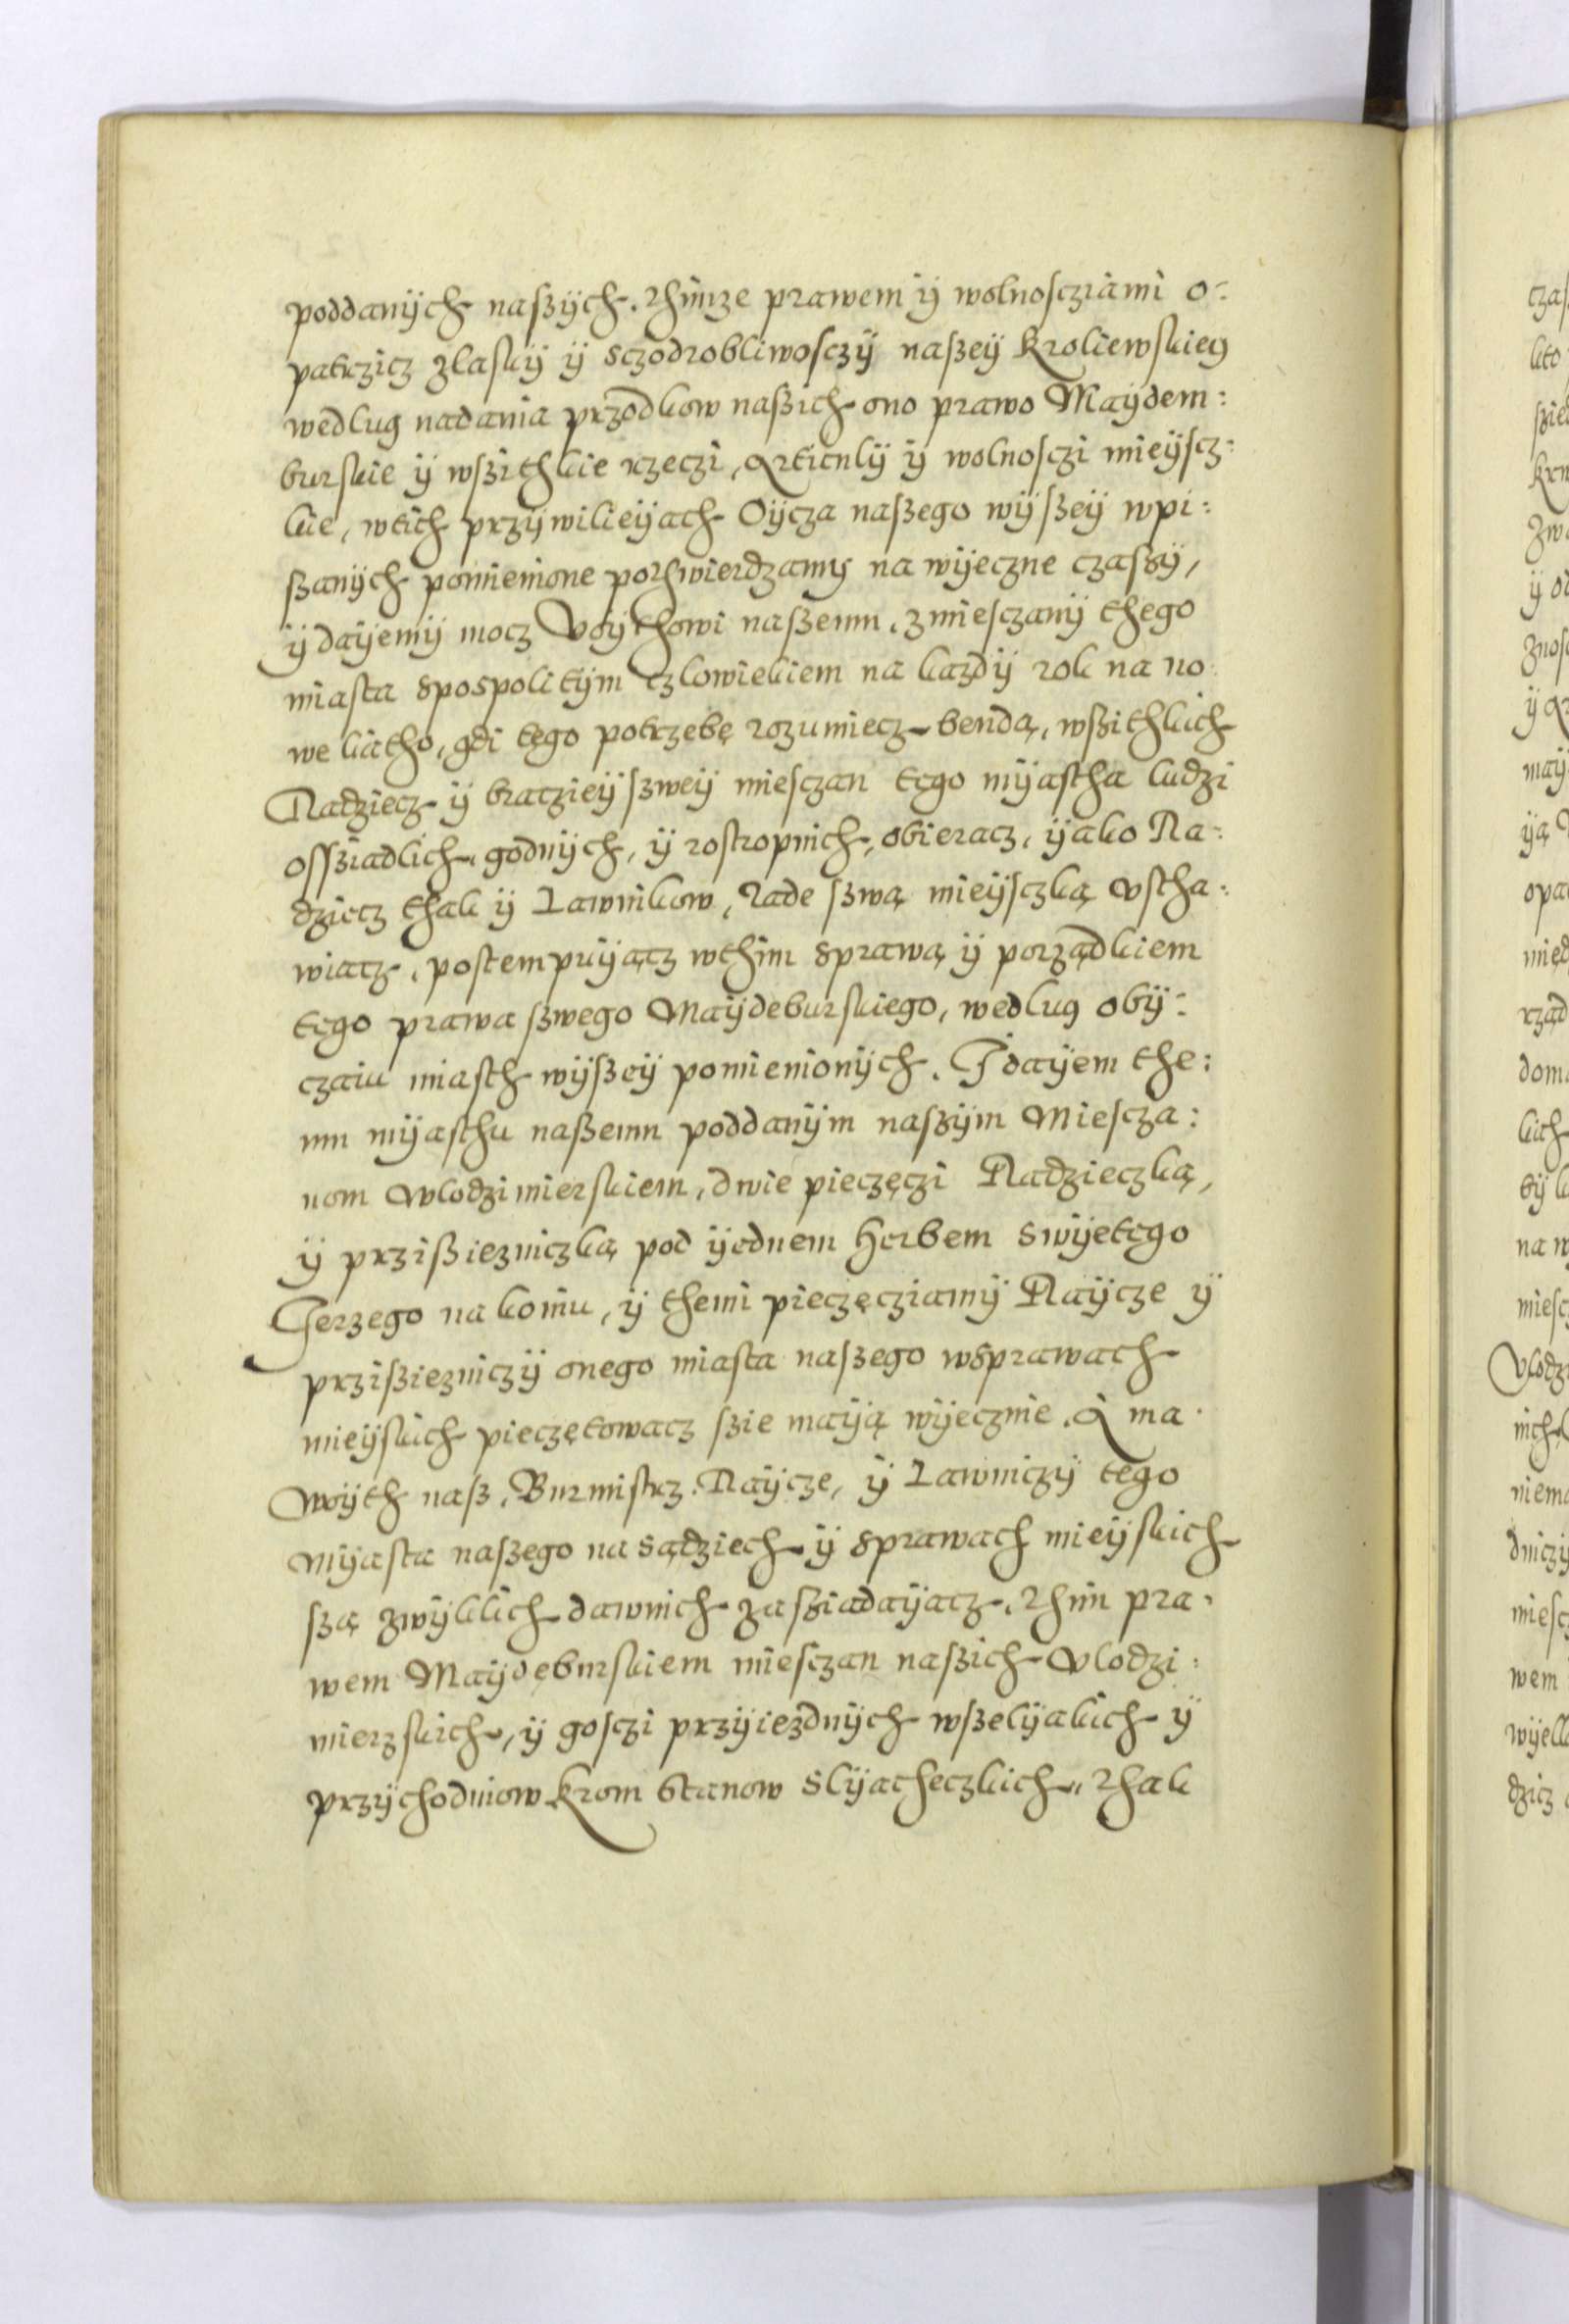 poddanÿch naszÿch. Thimze prawem ÿ wolnoscziami o:
patrzicz zlaskÿ ÿ sczodrobliwosczÿ naszeÿ Kroliewskieÿ
wedlug nadania przodkow naszich ono prawo Maÿdem:
burskie ÿ wszithkie rzeczi, Articulÿ ÿ wolnosczi mieÿscz:
kie, wtich przÿwilieÿach Oÿcza naszego wÿszeÿ wpi:
szanÿch pomienione pothwierdzamÿ na wÿeczne czaszÿ,
ÿ daÿemÿ mocz Voÿthowi naszemu, zmiesczanÿ thego
miasta spospolitÿm czlowiekiem na kazdÿ rok na no
we liatho, gdi tego potrzebę rozumiecz bendą, wszithkich
Radziecz ÿ braczieÿ szweÿ miesczan tego mÿastha ludzi
osszიadlich, godnÿch, ÿ rostropnich, obieracz, ÿako Ra:
dziecz thak ÿ Lawnikow, Rade szwą mieÿsczką vstha:
wiacz, postempuÿącz wthim sprawą ÿ porządkiem
tego prawa szwego Maÿdeburskiego, wedlug obÿ:
czaiu miasth wÿszeÿ pomienionÿch. J daÿem the:
mu mÿasthu naszemu poddanÿm naszÿm Miescza:
nom Wlodzimierskiem, dwie pieczęczi Radzieczką,
ÿ przisziezniczką pod ÿednem Herbem swÿetego
Jerzego na koniu, ÿ themi pieczęcziamÿ Raÿcze ÿ
przisziezniczÿ onego miasta naszego wsprawach
mieÿskich pieczętowacz szie maÿą wÿecznie. A ma
Woÿth nasz, Burmistrz, Raÿcze, ÿ Lawniczÿ tego
Mÿasta naszego na sądziech ÿ sprawach mieÿskich
szą zwÿklich dawnich zasziadaÿacz, Thim pra:
wem Maÿdeburskiem miesczan naszich Vlodzi:
mierzskich, ÿ gosczi przÿiezdnÿch wszelÿakich ÿ
przÿchodniow krom stanow slÿacheczkich, Thak